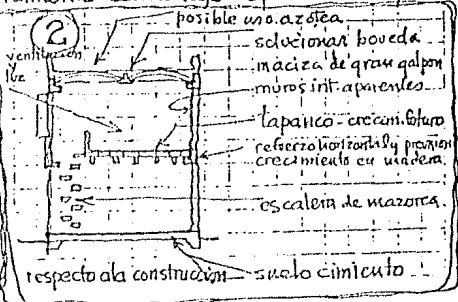 2
posible uso. azotea
solucionar boveda
ventilación
luz
maciza de gran galpon
muros int. aparentes
tapanco-crecim. futuro
refuerzo horizontal y
crecimiento en madera.
escalera de mazorca.
respecto a la construcción
suelo cimiento